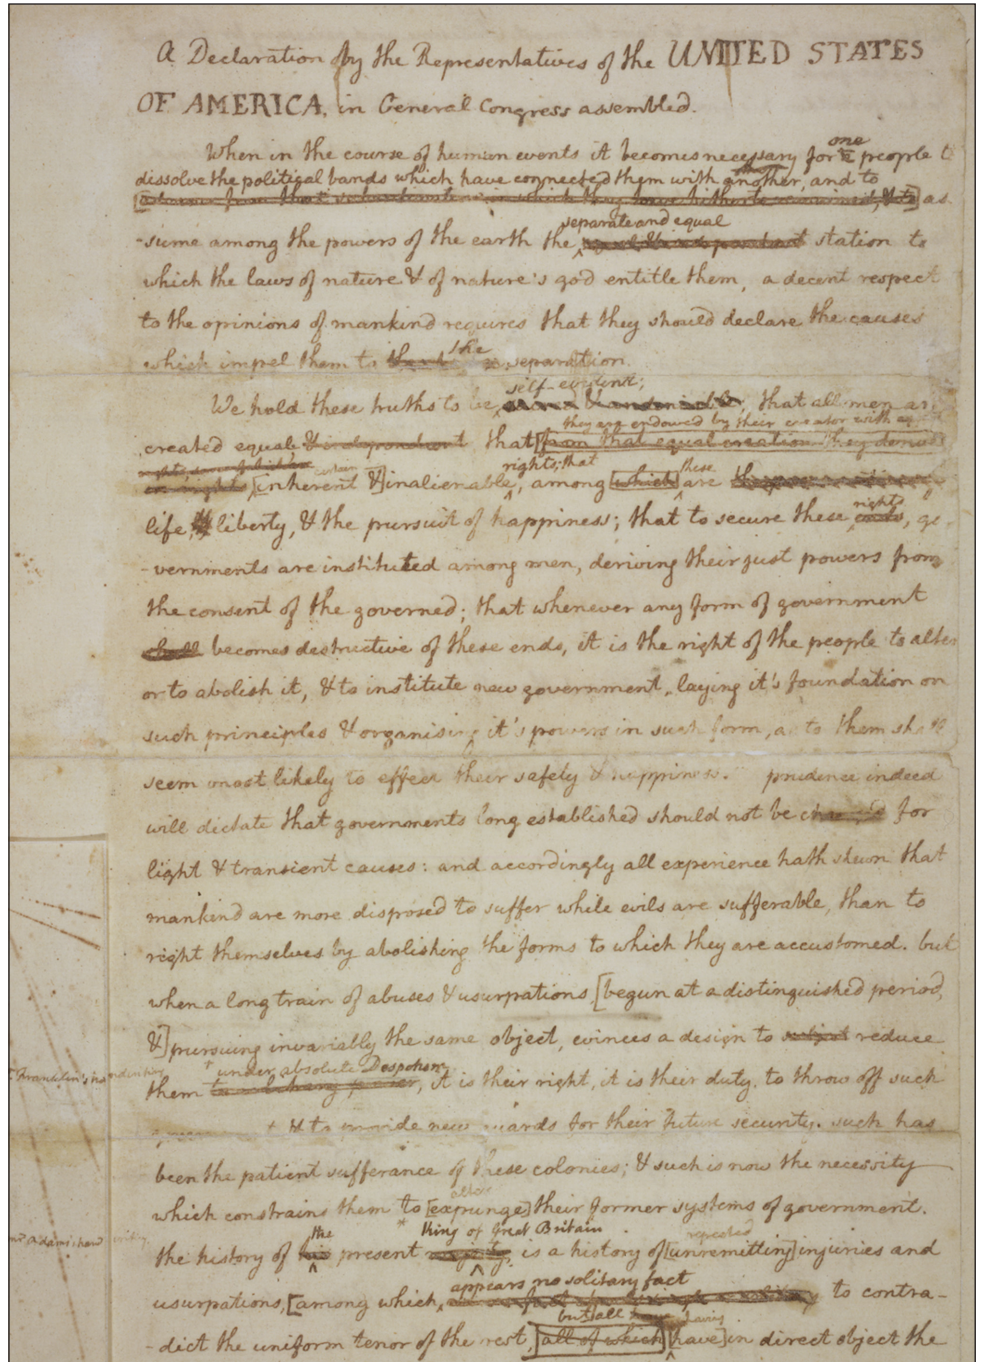 A Declaration by the Representatives of the UNITED STATES
OF AMERICA, in General Congress assembled.
one
When in the course of human events it becomes necessary for people t
dissolve the political bands which have connected them with another, and to
as
separate and equal
-sume among the powers of the earth the station to
which the laws of nature & of nature's god entitle them, a decent respect
to the opinions of mankind requires that they should declare the causes
the
which impel them to separation.
self-evident;
We hold these truths to be, that all men ar
they are endowed by their creator with
created equal & independent that [from that equal creation they derive
rights; that
certain these
[inherent &] inalienable, among [which] are
rights
life, liberty, & the pursuit of happiness; that to secure these ends, go
-vernments are instituted among men, deriving their just powers from
the consent of the governed; that whenever any form of government
shall becomes destructive of these ends, it is the right of the people to alter
or to abolish it, & to institute new government, laying it's foundation on
such principles & organising it's powers in such form, as to them shall
seem most likely to effect their safety & happiness. prudence indeed
will dictate that governments long established should not be changed for
light & transient causes: and accordingly all experience hath shewn that
mankind are more disposed to suffer while evils are sufferable, than to
right themselves by abolishing the forms to which they are accustomed. but
when a long train of abuses & usurpations, [begun at a distinguished period,
&] pursuing invariably the same object, evinces a design to subject reduce
Franklin's handwriting
under absolute Despotism
them, it is their right, it is their duty, to throw off such
& to provide new guards for their future security. such has
been the patient sufferance of these colonies; & such is now the necessity
alter
which constrains them to [expunge] their former systems of government.
mr Adams' hand writing
the * king of Great Britain repeated
the history of his present majesty, is a history of [unremitting] injuries and
appears no solitary fact
usurpations, [among which, to contra-
but all have having
-dict the uniform tenor of the rest, [all of which] [have] in direct object the